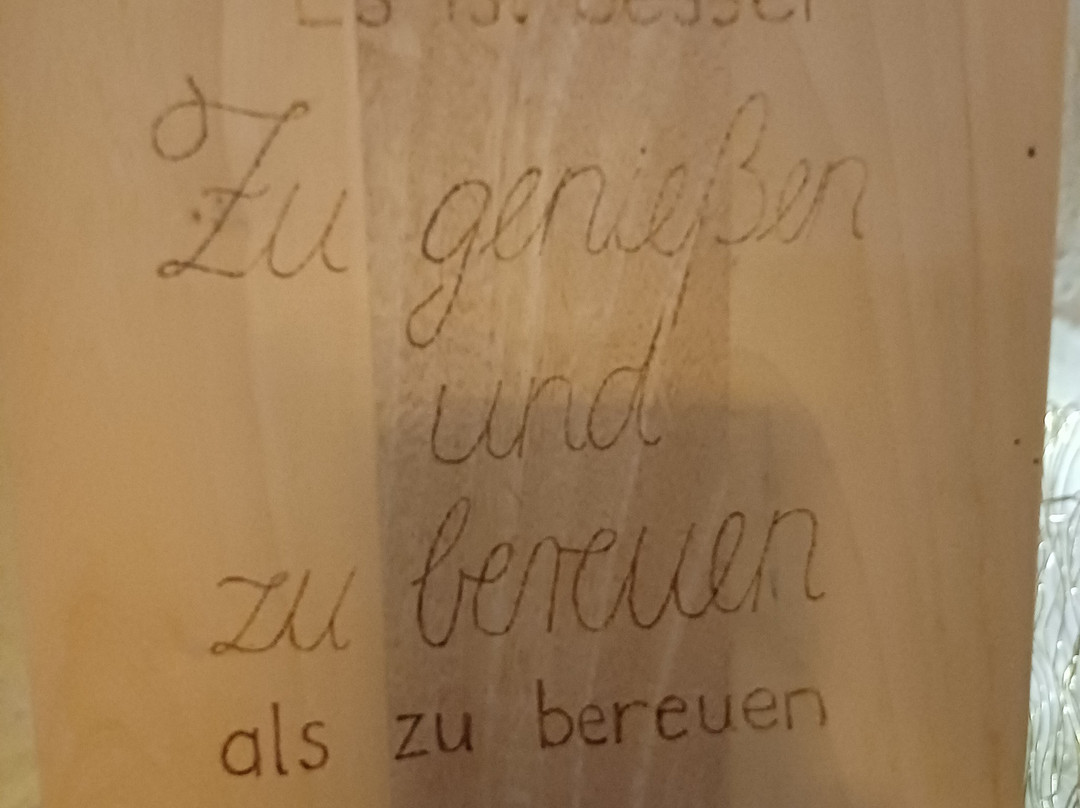 Es ist besser
Zu genießen
und
zu bereuen
als zu bereuen